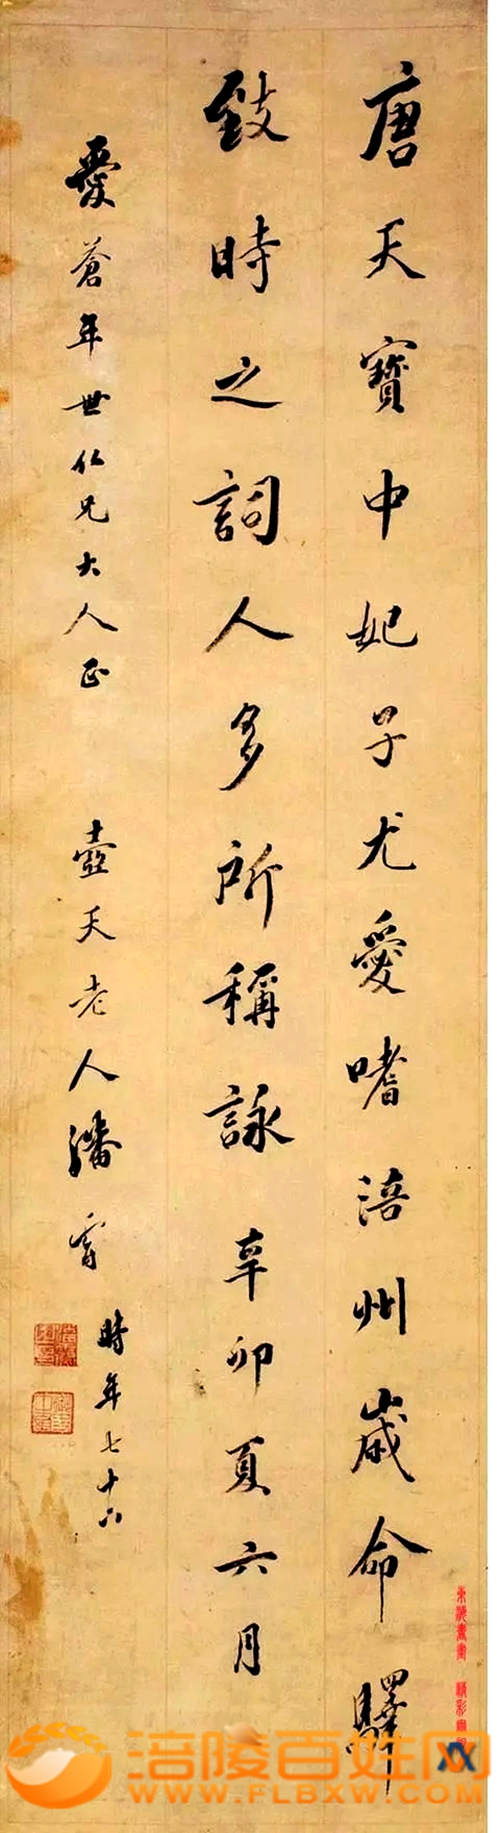 唐天寶中妃子尤愛嗜涪州歲命驛
致時之詞人多所稱詠辛卯夏六月
愛蒼年世仁兄大人正
壺天老人潘霨
時年七十六
涪陵百姓网
WWW.FLBXW.COM